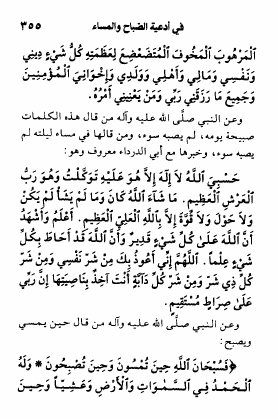 في أدعية الصّباح والمساء ٣٥٥
ٱلْمَرْهُوبَ ٱلْمَخُوفَ ٱلْمُتَضَعْضِعَ لِعَظَمَتِهِ كُلُّ شَيْءٍ دِينِي
وَنَفْسِي وَمَالِي وَأَهْلِي وَوَلَدِي وَإِخْوَانِيَ ٱلْمُؤْمِنِينَ
وَجَمِيعَ مَا رَزَقَنِي رَبِّي وَمَنْ يَعْنِينِي أَمْرُهُ.
وعن النبي صلَّى الله عليه وآله من قال هذه الكلمات
صبيحة يومه، لم يصبه سوء، ومن قالها في مساء ليلته لم
يصبه سوء، وخبرها مع أبي الدرداء معروف وهو:
حَسْبِيَ ٱللَّهُ لَا إِلَهَ إِلَّا هُوَ عَلَيْهِ تَوَكَّلْتُ وَهُوَ رَبُّ
ٱلْعَرْشِ ٱلْعَظِيمِ. مَا شَآءَ ٱللَّهُ كَانَ وَمَا لَمْ يَشَأْ لَمْ يَكُنْ
وَلَا حَوْلَ وَلَا قُوَّةَ إِلَّا بِٱللَّهِ ٱلْعَلِيِّ ٱلْعَظِيمِ. أَعْلَمُ وَأَشْهَدُ
أَنَّ ٱللَّهَ عَلَىٰ كُلِّ شَيْءٍ قَدِيرٌ وَأَنَّ ٱللَّهَ قَدْ أَحَاطَ بِكُلِّ
شَيْءٍ عِلْماً. ٱللَّهُمَّ إِنِّي أَعُوذُ بِكَ مِنْ شَرِّ نَفْسِي وَمِنْ شَرِّ
كُلِّ ذِي شَرٍّ وَمِنْ شَرِّ كُلِّ دَآبَّةٍ أَنْتَ آخِذٌ بِنَاصِيَتِهَا إِنَّ رَبِّي
عَلَىٰ صِرَاطٍ مُسْتَقِيمٍ.
وعن النبي صلَّى الله عليه وآله من قال حين يمسي
ويصبح:
﴿فَسُبْحَانَ ٱللَّهِ حِينَ تُمْسُونَ وَحِينَ تُصْبِحُونَ * وَلَهُ
ٱلْحَمْدُ فِي ٱلسَّمَوَاتِ وَٱلْأَرْضِ وَعَشِيّاً وَحِينَ